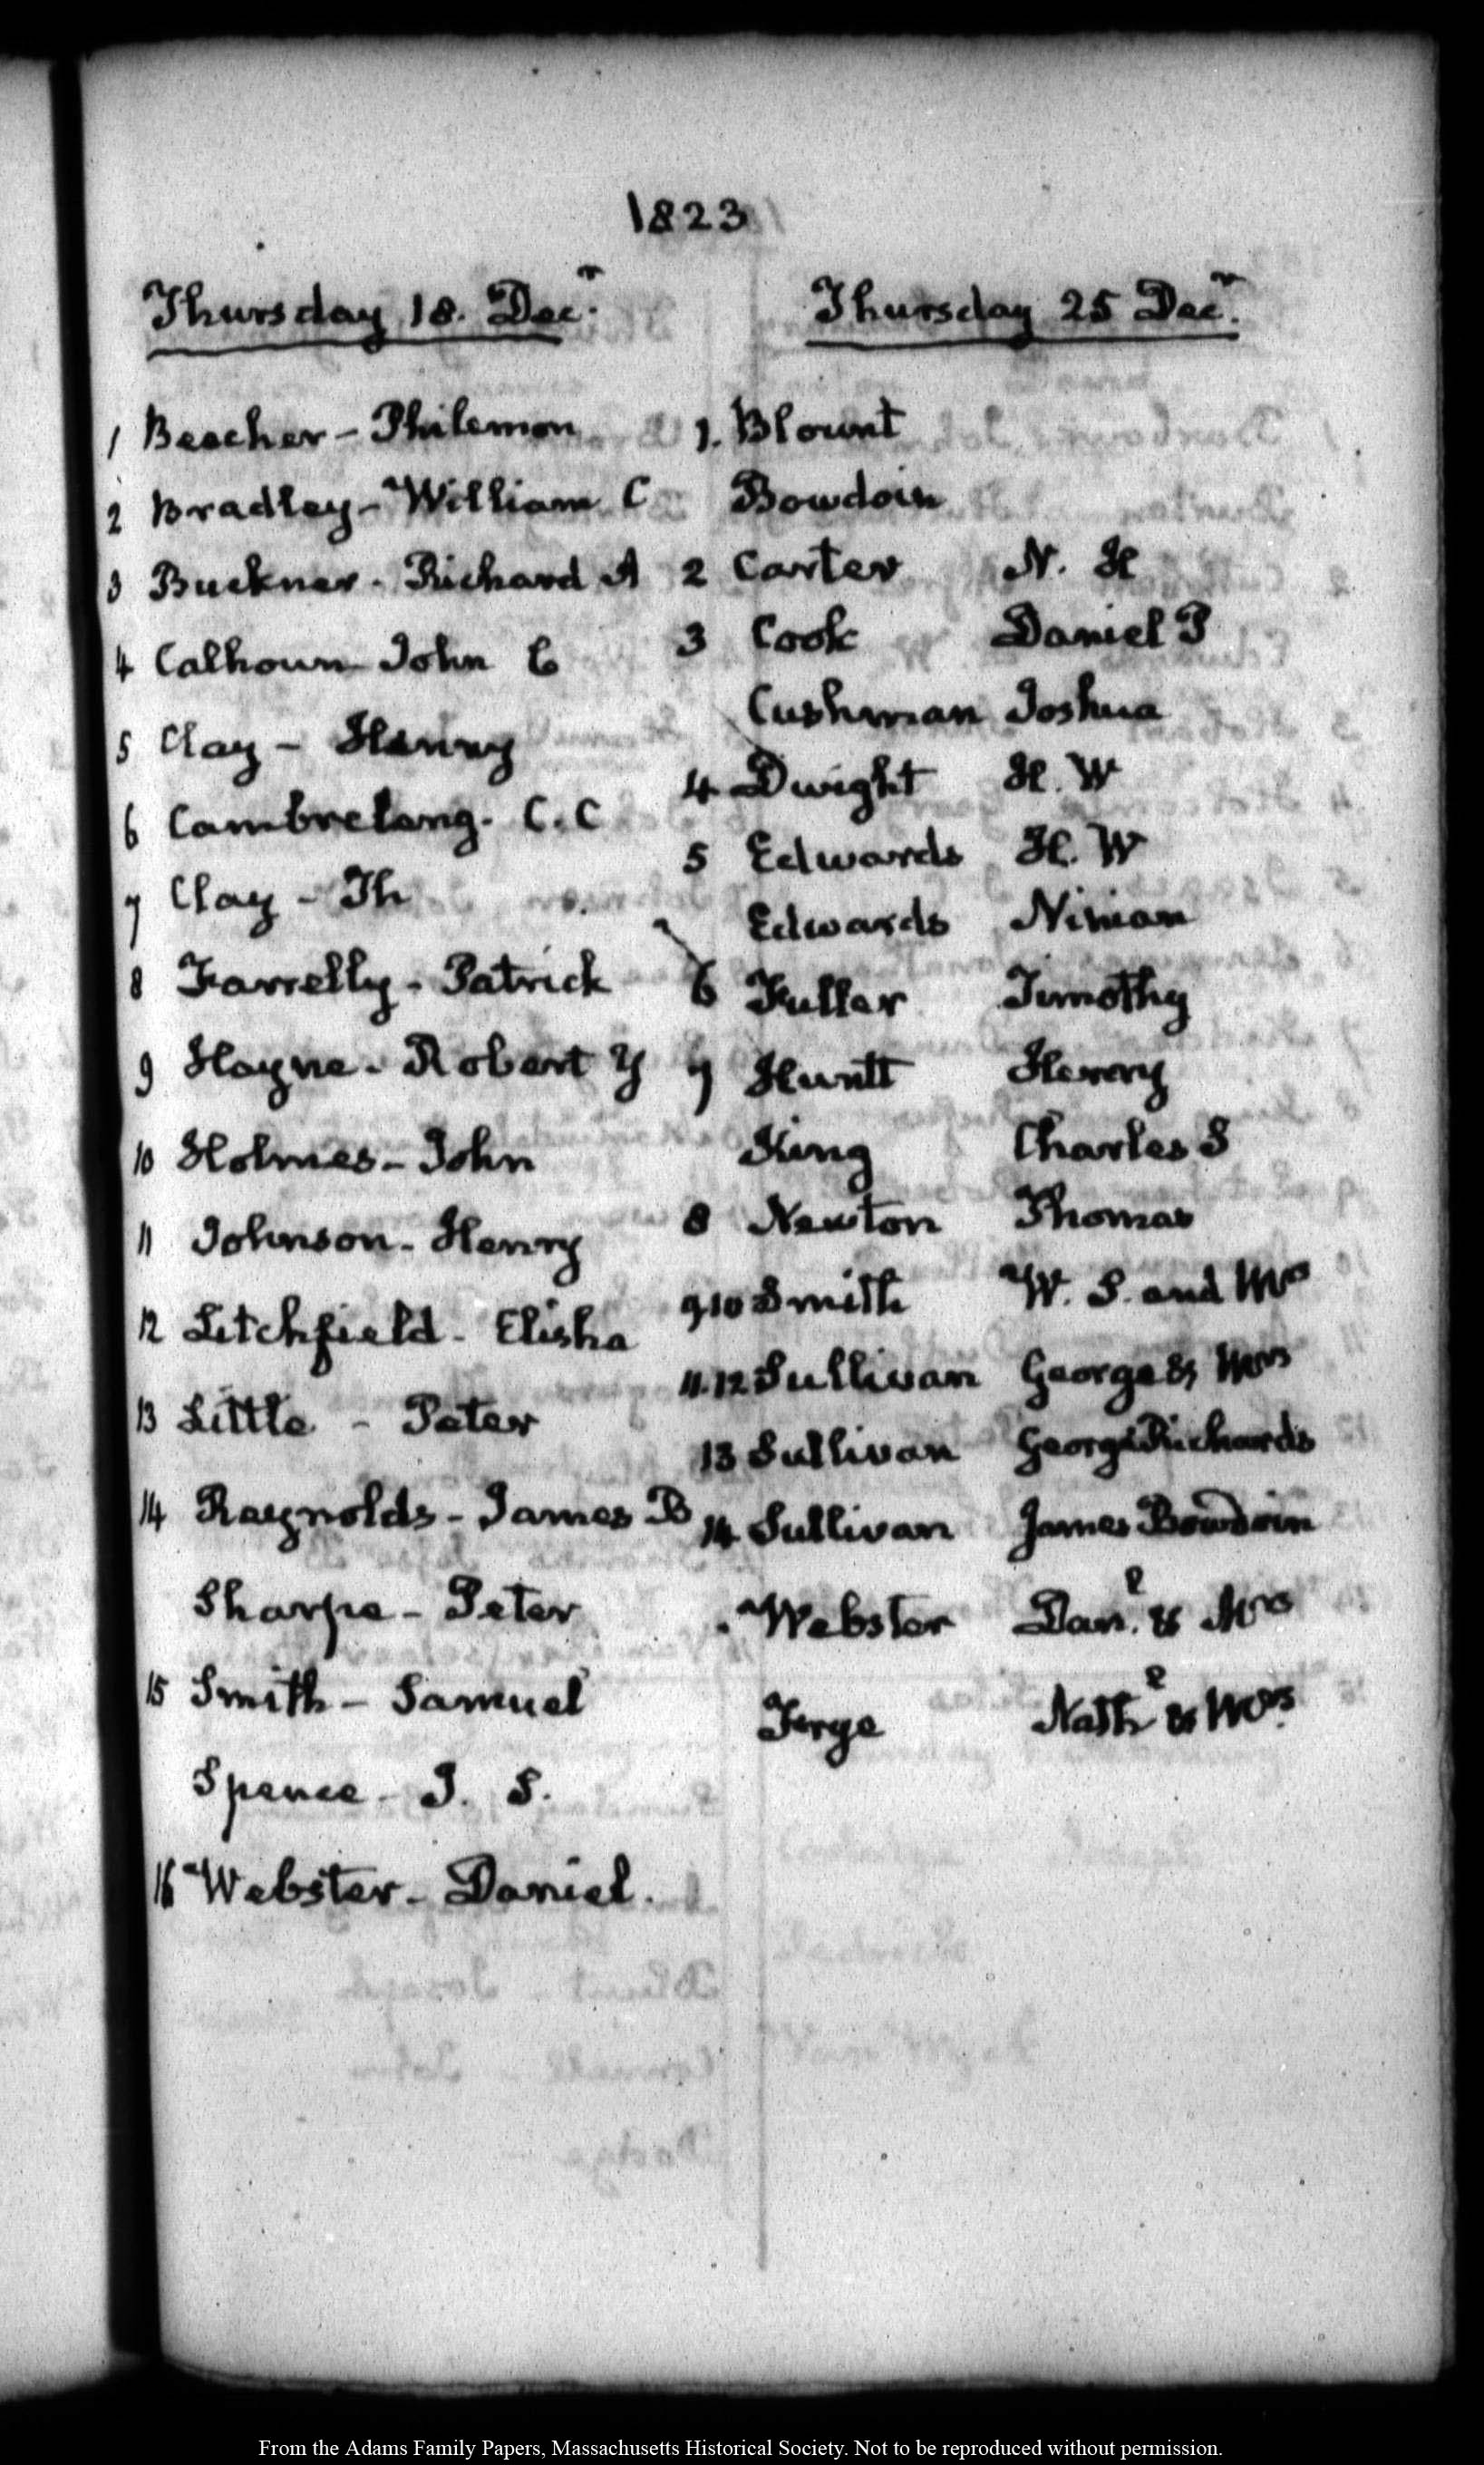 1823
Thursday 18. Decr.
1 Beecher - Philemon
2 Bradley - William C
3 Buckner - Richard A
4 Calhoun John C
5 Clay - Henry
6 Cambreleng. C. C
7 Clay - Th
8 Farrelly - Patrick
9 Hayne - Robert Y
10 Holmes - John
11 Johnson - Henry
12 Litchfield - Elisha
13 Little - Peter
14 Reynolds - James B
Sharpe - Peter
15 Smith - Samuel
Spence - J. S.
16 Webster - Daniel.
Thursday 25 Decr.
1. Blount
Bowdoin
2 Carter N. H
3 Cook Daniel P
Cushman Joshua
4 Dwight H. W
5 Edwards H. W
Edwards Ninian
6 Fuller Timothy
7 Hunt Henry
King Charles S
8 Newton Thomas
9 10 Smith W. S. and Mrs
11. 12 Sullivan George & Mrs
13 Sullivan George Richards
14 Sullivan James Bowdoin
Webster Danl. & Mrs
Frye Nathl & Mrs.
From the Adams Family Papers, Massachusetts Historical Society. Not to be reproduced without permission.